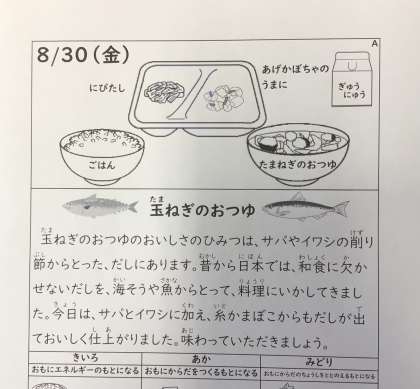 A
8/30(金)
にびたし
あげかぼちゃの
うまに
ぎゅう
にゅう
ごはん
たまねぎのおつゆ
玉ねぎのおつゆ
玉ねぎのおつゆのおいしさのひみつは、サバやイワシの削り
節からとった、だしにあります。昔から日本では、和食に欠か
せないだしを、海そうや魚からとって、料理にいかしてきまし
た。今日は、サバとイワシに加え、糸かまぼこからもだしが出
ておいしく仕上がりました。味わっていただきましょう。
きいろ
あか
みどり
おもにエネルギーのもとになる
おもにからだをつくるもとになる
おもにからだのちょうしをととのえるもとになる